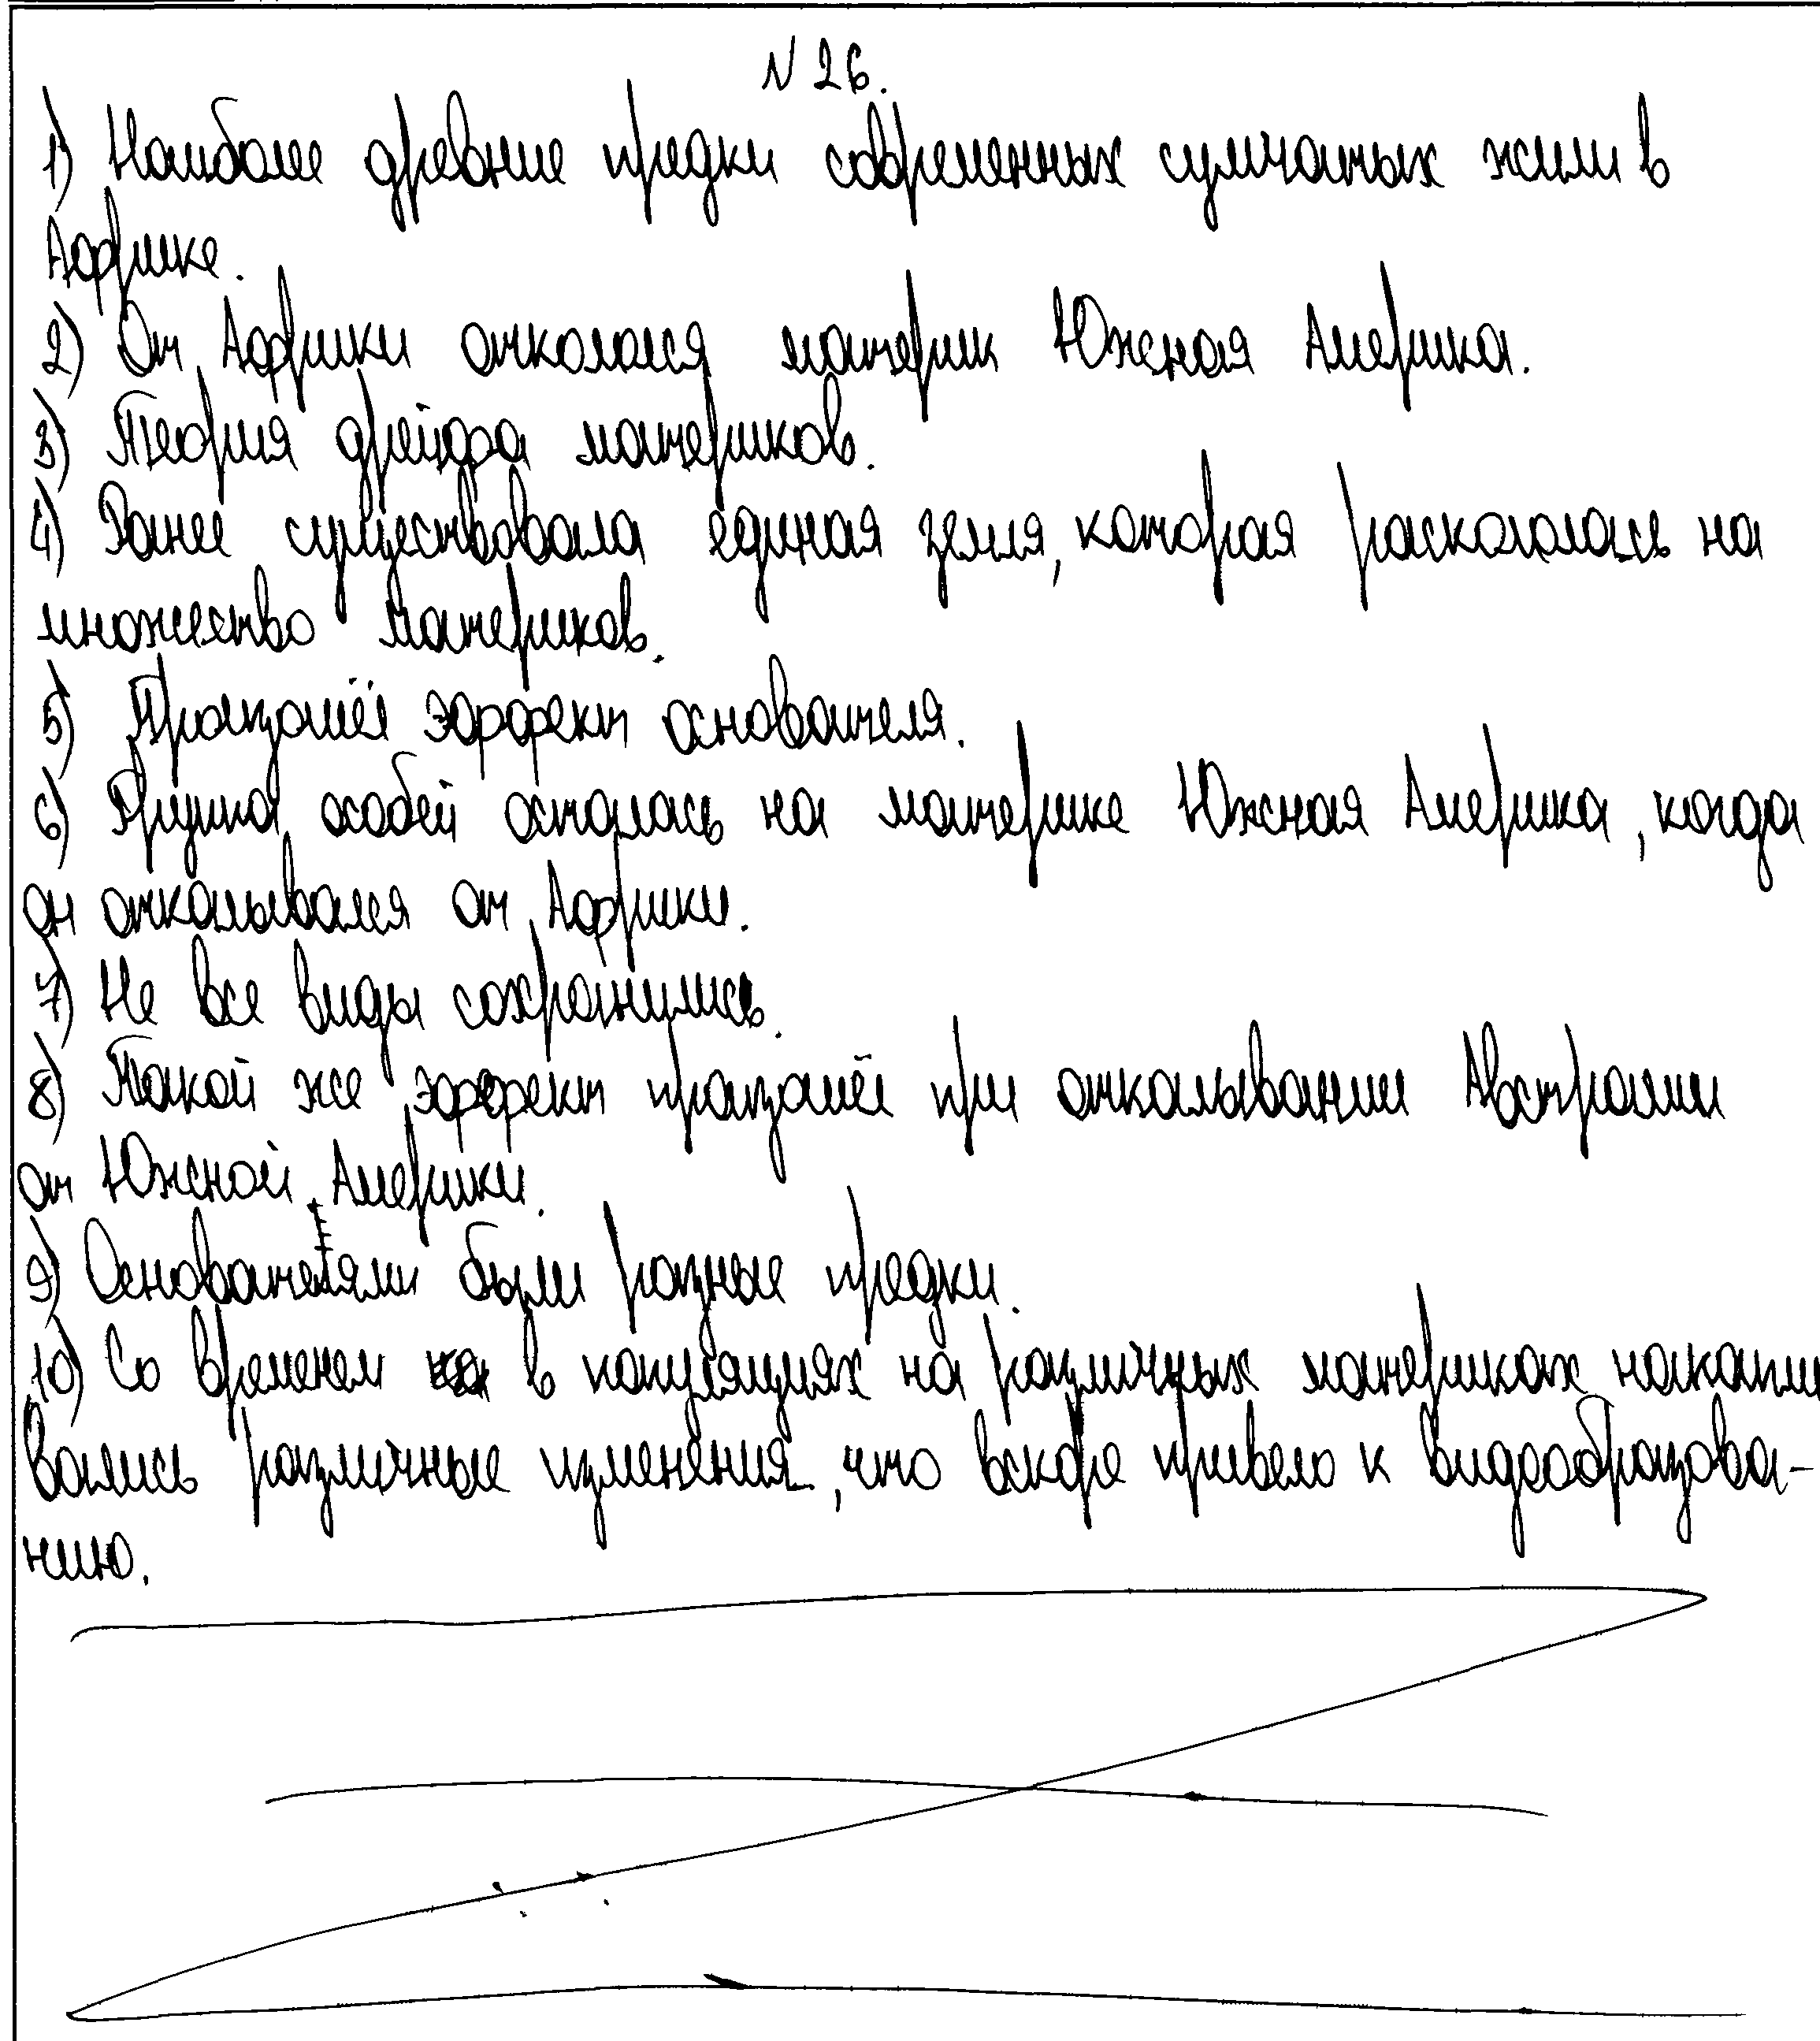 N 26.
1) Наиболее древние предки современных сумчатых жили в
Африке.
2) От Африки откололся материк Южная Америка.
3) Теория дрейфа материков.
4) Ранее существовала единая земля, которая раскололась на
множество материков.
5) Произошёл эффект основателя.
6) Группа особей осталась на материке Южная Америка, когда
он откалывался от Африки.
7) Не все виды сохранились.
8) Такой же эффект произошёл при откалывании Австралии
от Южной Америки.
9) Основателями были разные предки.
10) Со временем в популяциях на различных материках накапли
вались различные изменения, что вскоре привело к видеобразова-
нию.